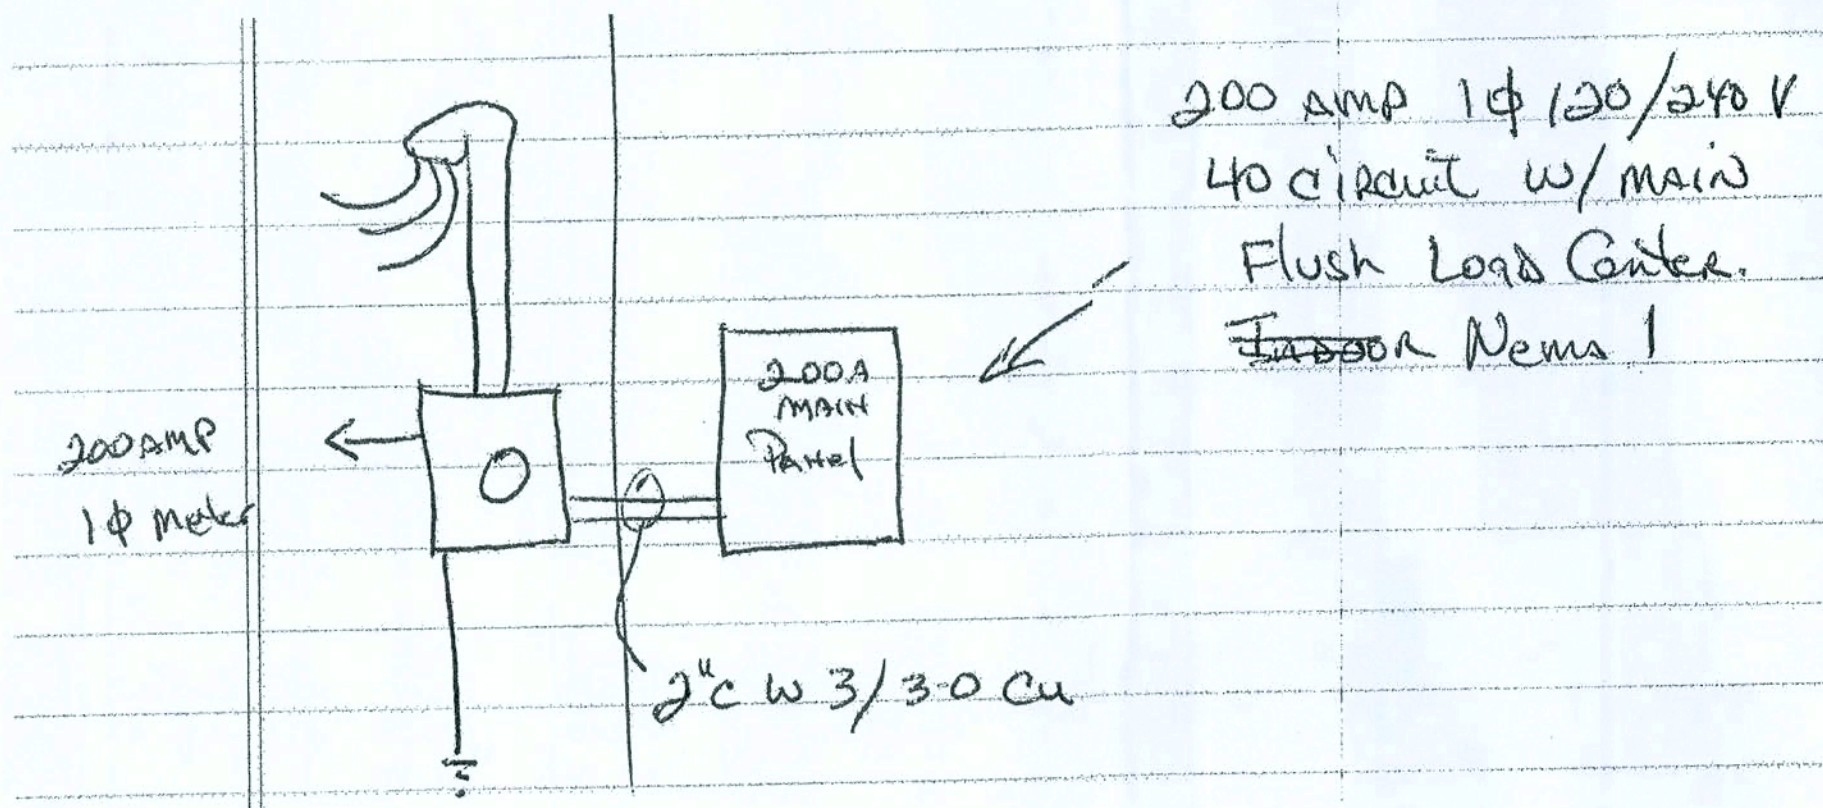 200 AMP 1ϕ 120/240 V
40 CIRCUIT W/ MAIN
Flush Load Center.
INDOOR Nema 1
200A
MAIN
Panel
200 AMP
1ϕ Meter
2"C W 3/3-0 Cu